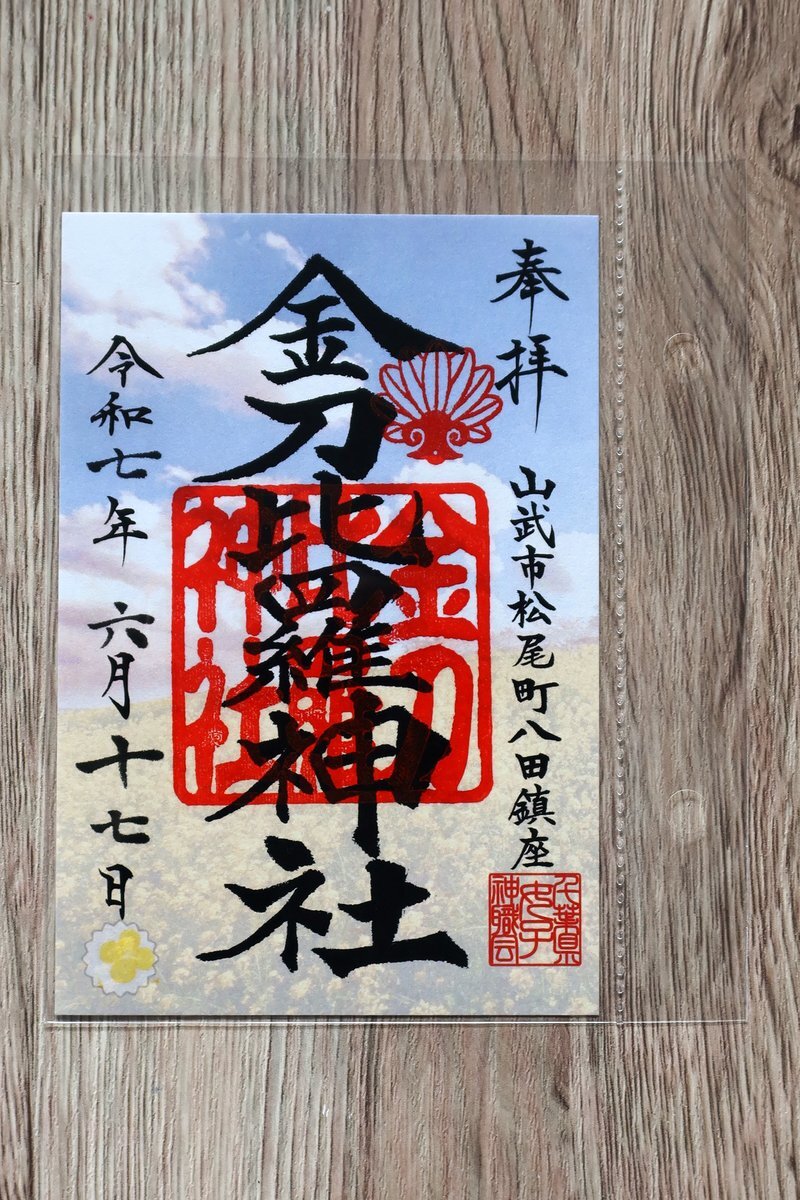 奉拝
山武市松尾町八田鎮座
千葉県
女子
神職会
金刀比羅神社
令和七年 六月十七日